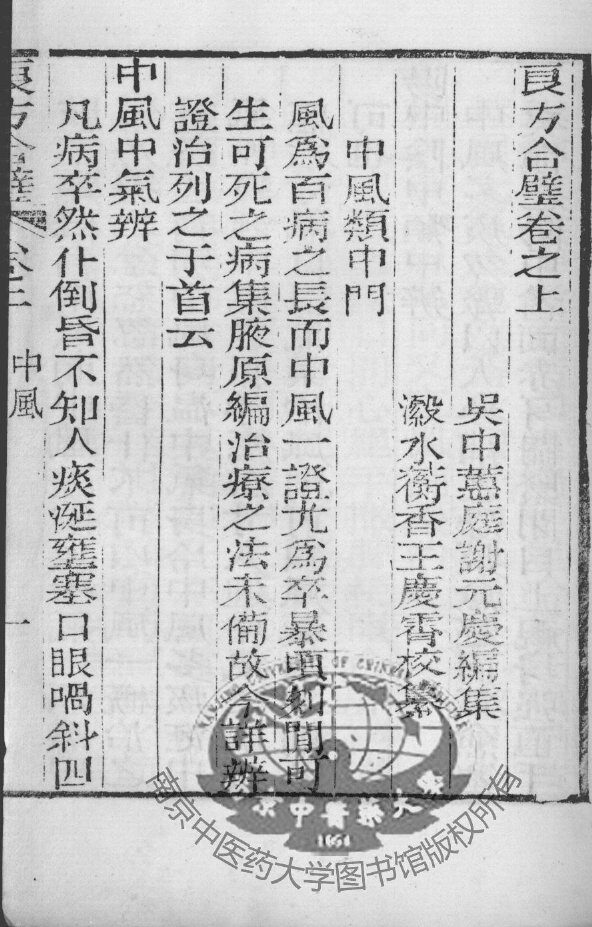 良方合璧卷之上
吳中蕙庭謝元慶編集
瀫水蘅香王慶霄校纂
中風類中門
風爲百病之長而中風一證尤爲卒暴頃刻間可
生可死之病集腋原編治療之法未備故余詳辨
證治列之于首云
中風中氣辨
凡病卒然仆倒昏不知人痰涎壅塞口眼喎斜四
良方合璧 卷上 中風 一
南京中医药大学图书馆版权所有
南京中醫藥大學
1954